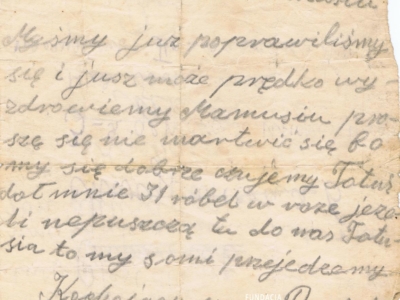 Myśmy już poprawiliśmy
się i jusz może prędko wy-
zdrowiemy Mamusiu pro-
szę się nie martwić się bo
my się dobrze czujemy Tatuś
dał mnie 31 róbel w raze jeze-
li nepuszczą tu do nas Tatu-
sia to my sami przejedzemy